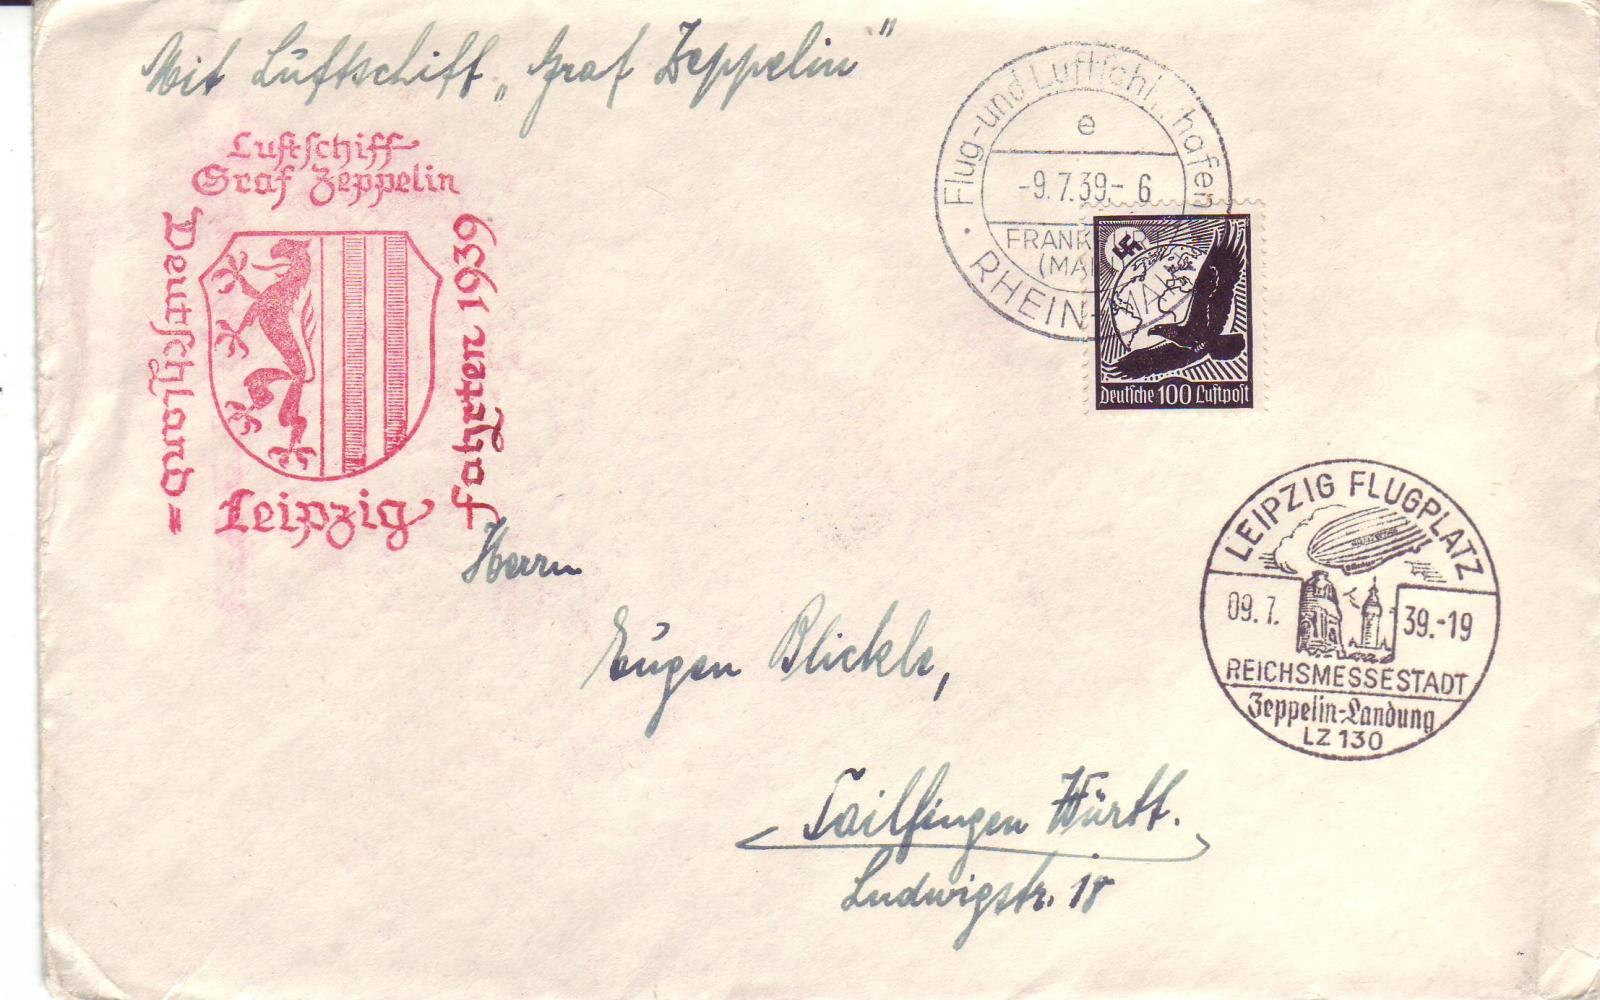 Mit Luftschiff „Graf Zeppelin"
Luftschiff
Graf Zeppelin
Deutschland=
fahrten 1939
Leipzig
Flug-und Luftschi..hafen
e
-9.7.39.-6
FRANKFUR
(MAI
RHEIN-MAIN
Deutsche 100 Luftpost
LEIPZIG FLUGPLATZ
09.7. 39.-19
REICHSMESSESTADT
Zeppelin-Landung
LZ 130
Herrn
Eugen Blickle,
Tailfingen Württ.
Ludwigstr. 18